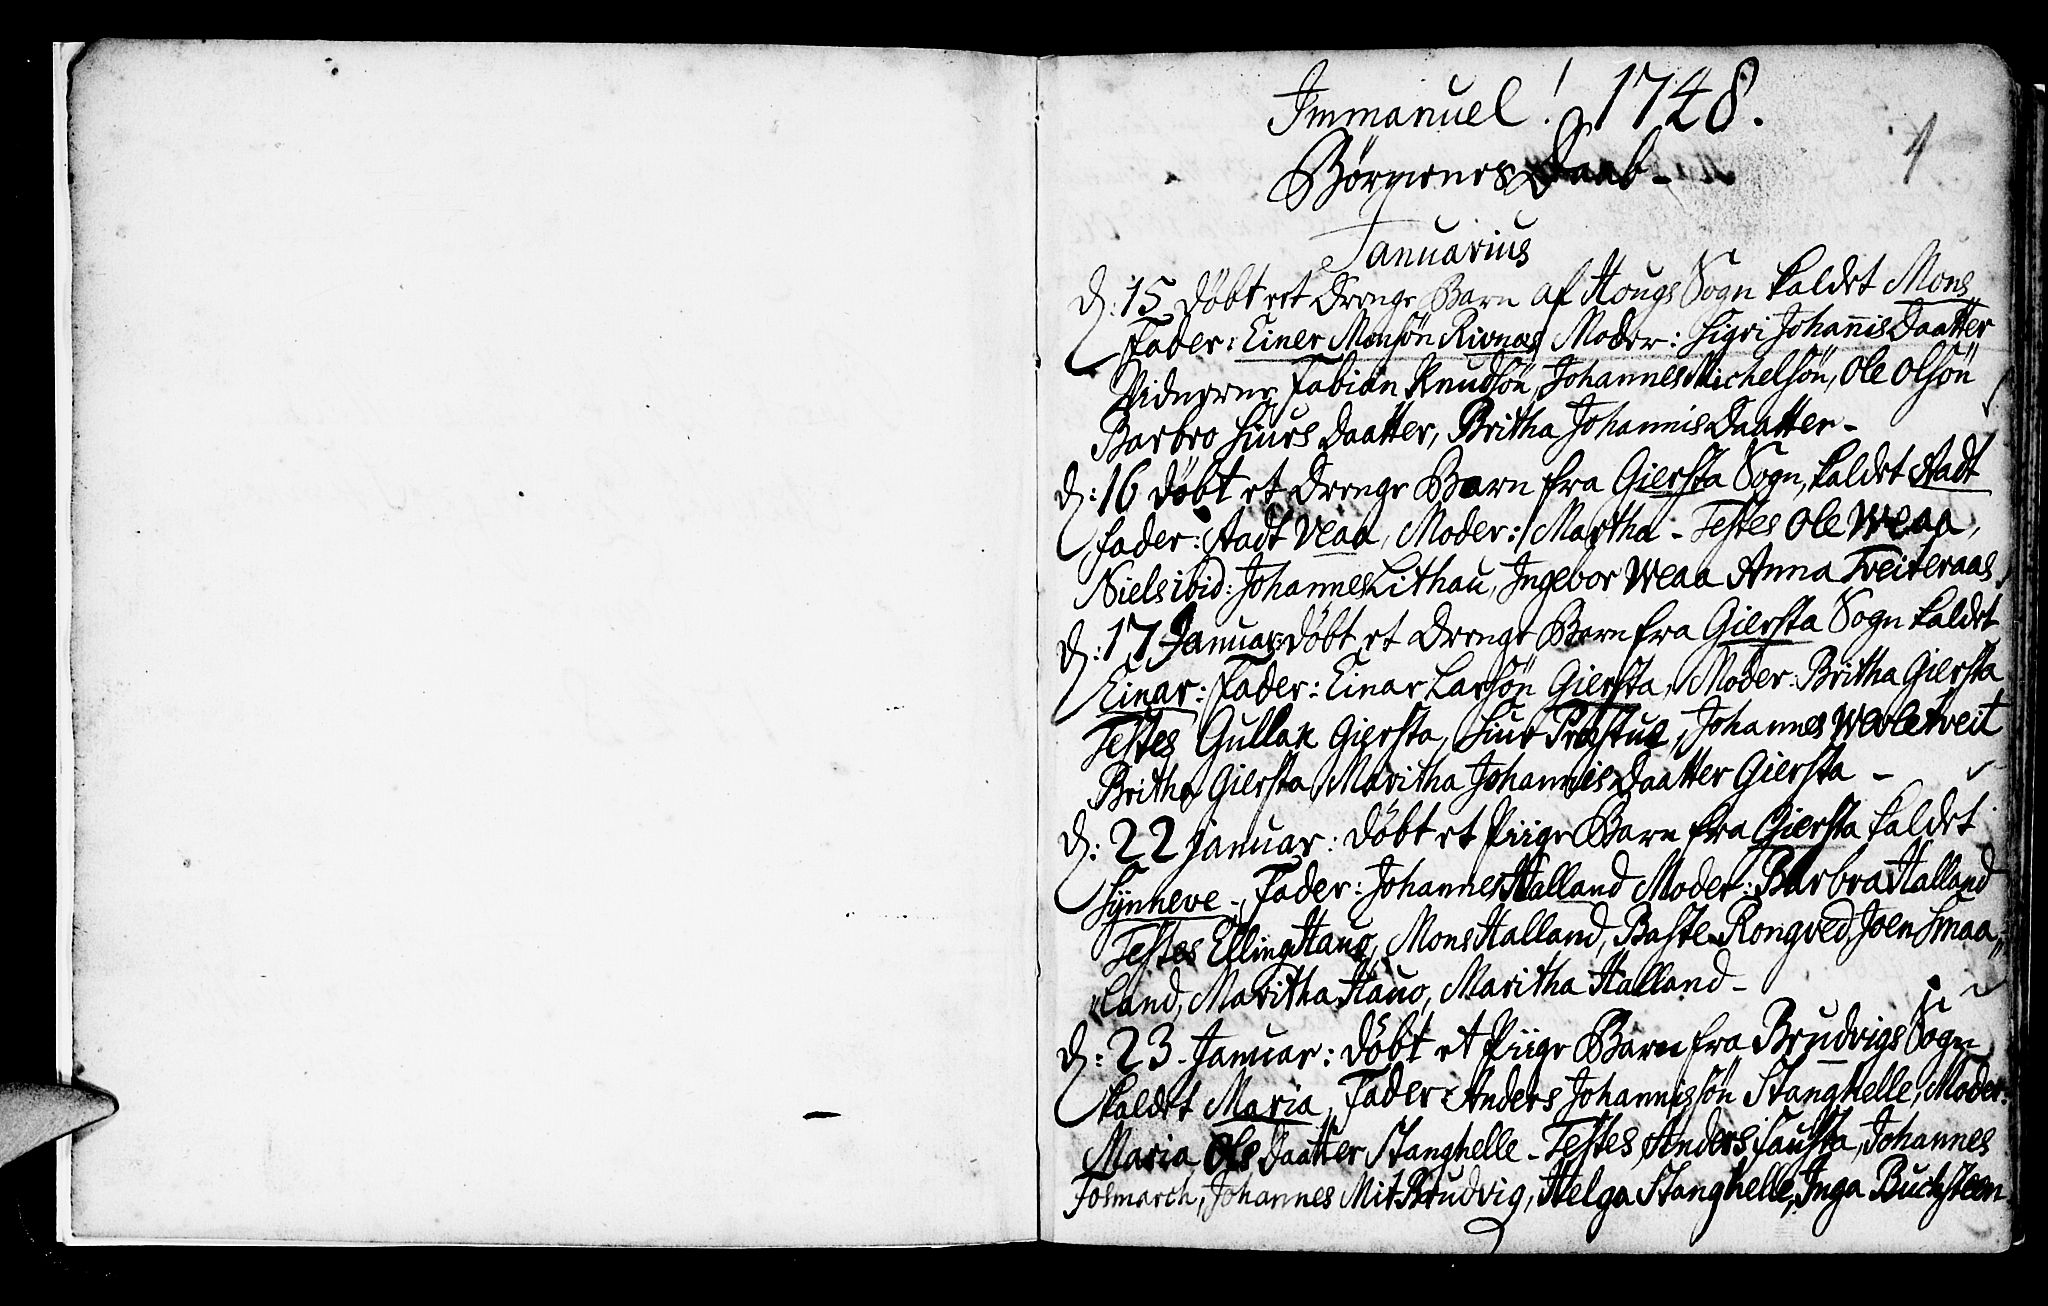 Immanuel! 1748.
1
Börnenes Daab-
Januarius
D: 15 döbt et Drenge Barn af Hougs Sogn kaldet Mons
Fader: Einer Monsön Rivnæs Moder: Sigri Johannis Daatter
Vidnerne Fabian Knudsön, Johannes Michelsön, Ole Olsön
Barbro Siurs Daatter, Britha Johannis Daatter-
D: 16 döbt et Drenge Barn fra Giersta Sogn, kaldet Aadt
Fader: Aadt Veaa, Moder: Martha - Testes Ole Weaa,
Niels ibid: Johannes Lithau, Ingebor Weaa Anna Tveiteraas
D: 17 Januar: döbt et Drenge Barn fra Giersta Sogn kaldet
Einar: Fader: Einar Larsön Giersta, Moder: Britha Giersta
Testes Gullak Giersta, Siur Præstue, Johannes Wevletveit
Britha Giersta Maritha Johannis Daatter Giersta -
D: 22 Januar: döbt et Piige Barn fra Giersta kaldet
Synneve -, Fader: Johannes Halland Moder: Barbra Halland
Testes Elling Haug, Mons Halland, Baste Rongved, Joen Smaa„
„land, Maritha Haug, Maritha Halland -
D: 23 - Januar: döbt et Piige Barn fra Brudvigs Sogn
kaldet Maria, Fader: Anders Johannissön Stanghelle, Moder:
Maria Ols Daatter Stanghelle - Testes Anders Fausta, Johannes
Fosmarch, Johannes Mit-Brudvig, Helga Stanghelle, Inga Buchsteen